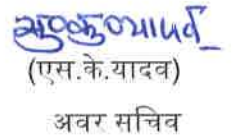 (एस.के.यादव)
अवर सचिव